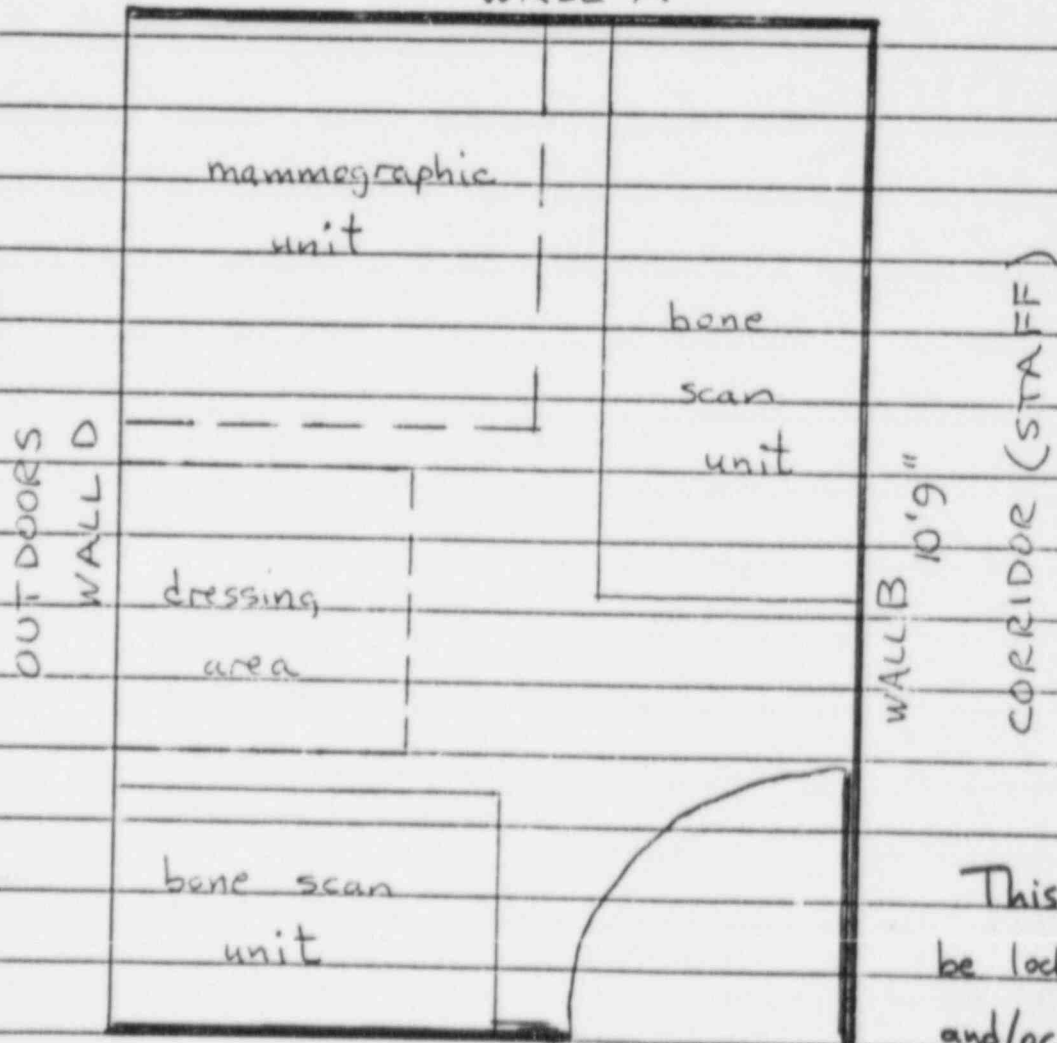 mammographic
unit
bone
scan
unit
OUTDOORS
WALL D
dressing
area
WALL B 10'9"
CORRIDOR (STAFF)
bone scan
unit
This
be
and/or